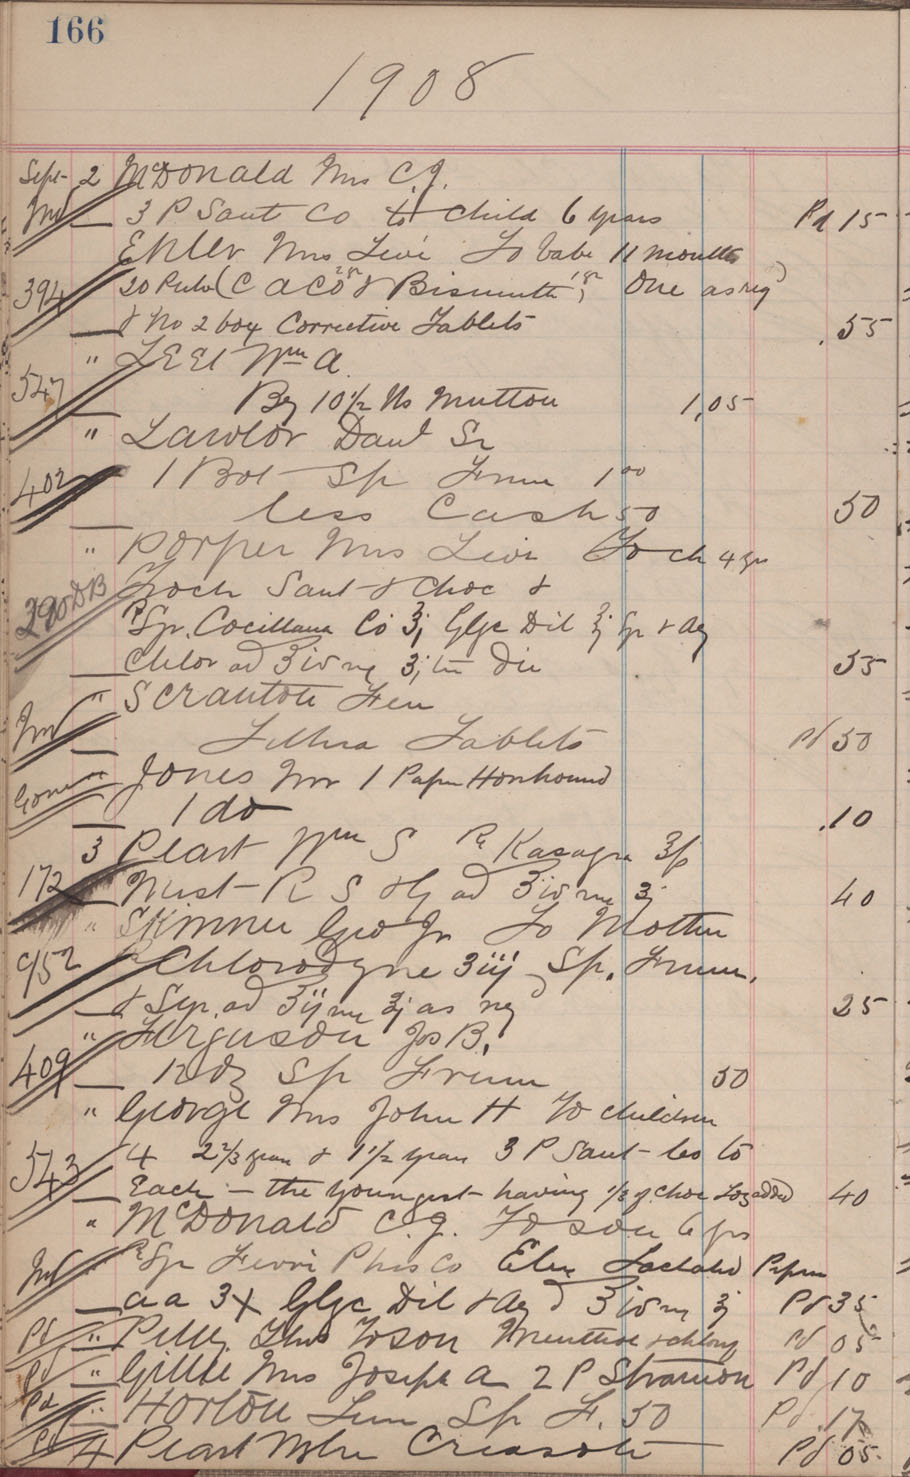 166
1908
Sept 2 McDonald Mrs C.J.
3 P Sant Co to child 6 years Pd 15
Ehler Mrs Levi To babe 11 months
394 20 Pulv (C a Co 2gr & Bismuth 1gr) One as req
& No 2 box Corrective Tablets .55
" LEEt Wm A.
547 By 10½ lbs Mutton 1.05
" Lawlor Danl Sr
402 1 Bot Sp Frum 1 00
less Cash 50 50
" Porper Mrs Levi To ch 4 yrs
290 DB Troch Sant & Choc &
Syr. Cocillana Co ʒj Glyc Dil ʒj &
Chlor ad ℥iv ʒj 55
" Scranton
Lithia Tablets Pd 50
Jones 1 Paper Horhound
1 do .10
3 Peart Wm S Rx Kasagra
172 Mist R S & G ad ℥iv ʒj 40
" Skinner Geo Jr To Mother
952 Chlorodyne ʒiij Sp. Frum.
& Syr. ad ℥ij ʒj as req 25
" Ferguson Jos B.
409 12 oz Sp Frum 50
" George Mrs John H To children
543 4 2 2/3 years & 1 1/2 years 3 P Sant Co to
Each – the youngest having ½ g choc Loz added 40
" McDonald C.J. To son 6 yrs
Syr Ferri Phos Co Elix Lactated Pepsin
aa ʒx Glyc Dil & Aq ad ℥iv ʒj Pd 35
Pd " To son Pd 05
Pd " Mrs Joseph A 2 P Stramon Pd 10
Pd " Horton Sp F. 50 Pd .17
Pd 4 Peart Creasote Pd 05